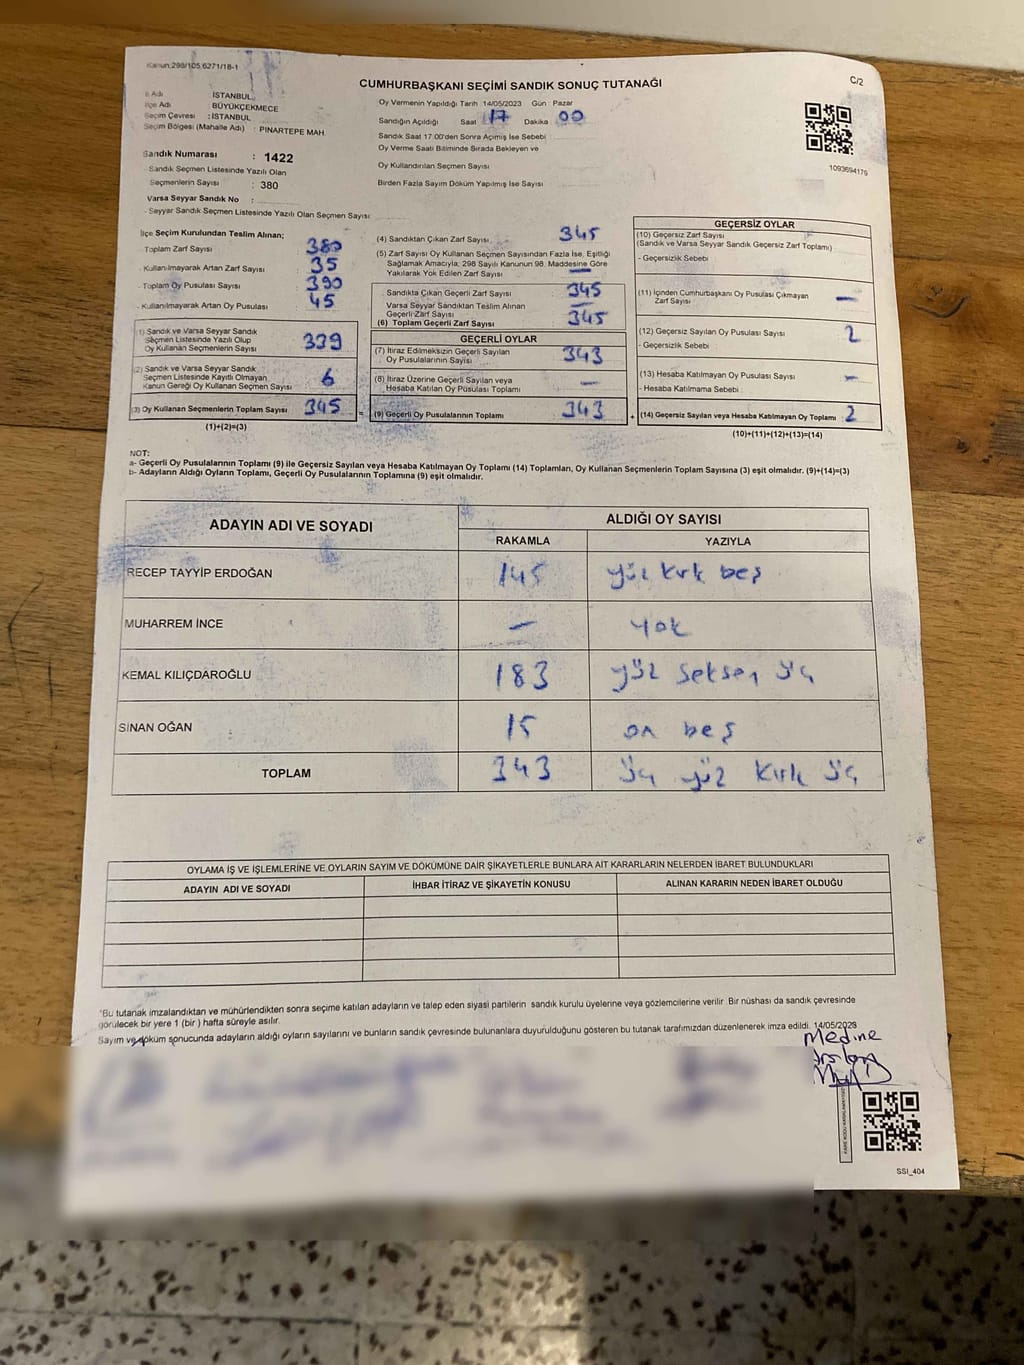 Kanun:298/105,6271/18-1
CUMHURBAŞKANI SEÇİMİ SANDIK SONUÇ TUTANAĞI
C/2
İl Adı : İSTANBUL
İlçe Adı : BÜYÜKÇEKMECE
Seçim Çevresi : İSTANBUL
Seçim Bölgesi (Mahalle Adı) : PINARTEPE MAH.
Sandık Numarası : 1422
Sandık Seçmen Listesinde Yazılı Olan
Seçmenlerin Sayısı : 380
Varsa Seyyar Sandık No :
- Seyyar Sandık Seçmen Listesinde Yazılı Olan Seçmen Sayısı:
Oy Vermenin Yapıldığı Tarih 14/05/2023 Gün : Pazar
Sandığın Açıldığı Saat 17 Dakika 00
Sandık Saat 17.00'den Sonra Açılmış İse Sebebi :
Oy Verme Saati Bitiminde Sırada Bekleyen ve
Oy Kullandırılan Seçmen Sayısı
Birden Fazla Sayım Döküm Yapılmış İse Sayısı
1093694179
İlçe Seçim Kurulundan Teslim Alınan;
- Toplam Zarf Sayısı 380
- Kullanılmayarak Artan Zarf Sayısı 35
- Toplam Oy Pusulası Sayısı 390
- Kullanılmayarak Artan Oy Pusulası 45
(1) Sandık ve Varsa Seyyar Sandık
Seçmen Listesinde Yazılı Olup
Oy Kullanan Seçmenlerin Sayısı 339
(2) Sandık ve Varsa Seyyar Sandık
Seçmen Listesinde Kayıtlı Olmayan
Kanun Gereği Oy Kullanan Seçmen Sayısı 6
(3) Oy Kullanan Seçmenlerin Toplam Sayısı 345 =
(1)+(2)=(3)
(4) Sandıktan Çıkan Zarf Sayısı 345
(5) Zarf Sayısı Oy Kullanan Seçmen Sayısından Fazla İse, Eşitliği
Sağlamak Amacıyla; 298 Sayılı Kanunun 98. Maddesine Göre
Yakılarak Yok Edilen Zarf Sayısı —
Sandıkta Çıkan Geçerli Zarf Sayısı 345
Varsa Seyyar Sandıktan Teslim Alınan
Geçerli Zarf Sayısı —
(6) Toplam Geçerli Zarf Sayısı 345
GEÇERLİ OYLAR
(7) İtiraz Edilmeksizin Geçerli Sayılan
Oy Pusulalarının Sayısı 343
(8) İtiraz Üzerine Geçerli Sayılan veya
Hesaba Katılan Oy Pusulası Toplamı —
(9) Geçerli Oy Pusulalarının Toplamı 343 +
GEÇERSİZ OYLAR
(10) Geçersiz Zarf Sayısı
(Sandık ve Varsa Seyyar Sandık Geçersiz Zarf Toplamı)
- Geçersizlik Sebebi :
(11) İçinden Cumhurbaşkanı Oy Pusulası Çıkmayan
Zarf Sayısı —
(12) Geçersiz Sayılan Oy Pusulası Sayısı 2
- Geçersizlik Sebebi :
(13) Hesaba Katılmayan Oy Pusulası Sayısı —
- Hesaba Katılmama Sebebi :
(14) Geçersiz Sayılan veya Hesaba Katılmayan Oy Toplamı 2
(10)+(11)+(12)+(13)=(14)
NOT:
a- Geçerli Oy Pusulalarının Toplamı (9) ile Geçersiz Sayılan veya Hesaba Katılmayan Oy Toplamı (14) Toplamları, Oy Kullanan Seçmenlerin Toplam Sayısına (3) eşit olmalıdır. (9)+(14)=(3)
b- Adayların Aldığı Oyların Toplamı, Geçerli Oy Pusulalarının Toplamına (9) eşit olmalıdır.
ADAYIN ADI VE SOYADI
ALDIĞI OY SAYISI
RAKAMLA YAZIYLA
RECEP TAYYİP ERDOĞAN 145 yüz kırk beş
MUHARREM İNCE — yok
KEMAL KILIÇDAROĞLU 183 yüz seksen üç
SİNAN OĞAN 15 on beş
TOPLAM 343 üç yüz kırk üç
OYLAMA İŞ VE İŞLEMLERİNE VE OYLARIN SAYIM VE DÖKÜMÜNE DAİR ŞİKAYETLERLE BUNLARA AİT KARARLARIN NELERDEN İBARET BULUNDUKLARI
ADAYIN ADI VE SOYADI İHBAR İTİRAZ VE ŞİKAYETİN KONUSU ALINAN KARARIN NEDEN İBARET OLDUĞU
*Bu tutanak imzalandıktan ve mühürlendikten sonra seçime katılan adayların ve talep eden siyasi partilerin sandık kurulu üyelerine veya gözlemcilerine verilir. Bir nüshası da sandık çevresinde
görülecek bir yere 1 (bir) hafta süreyle asılır.
Sayım ve döküm sonucunda adayların aldığı oyların sayılarını ve bunların sandık çevresinde bulunanlara duyurulduğunu gösteren bu tutanak tarafımızdan düzenlenerek imza edildi. 14/05/2023
Medine
Arslan
SSI_404